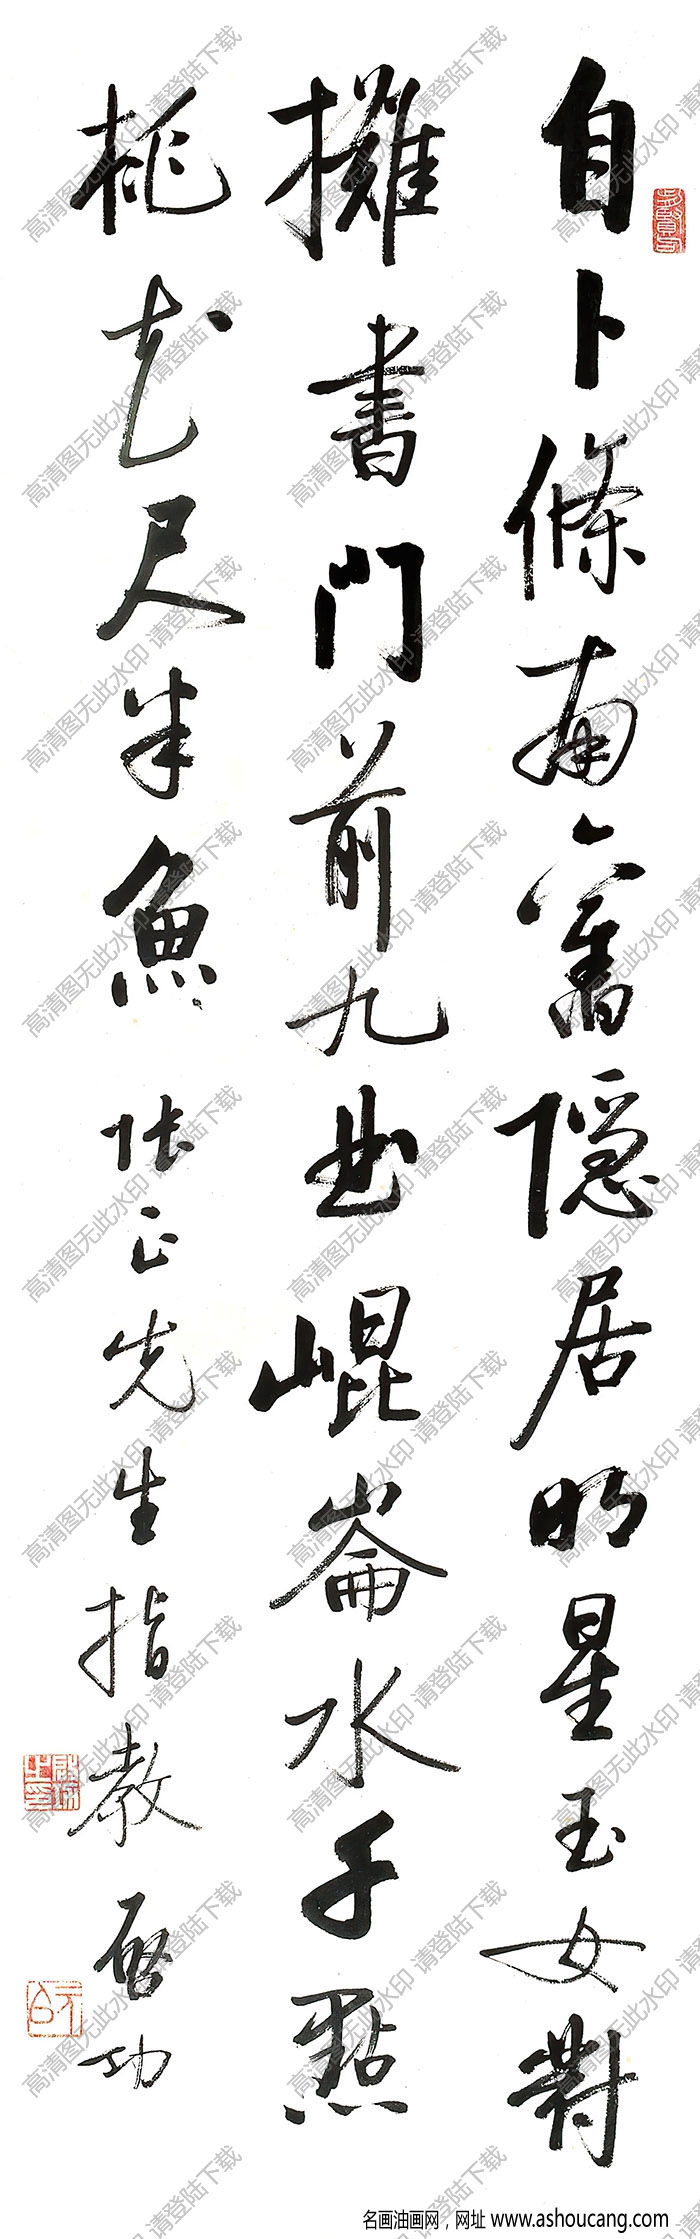 自卜條南舊隱居明星玉女對
攤書門前九曲崐崙水千點
桃花尺半魚
張正先生指教 啓功
启功之印
元白
高清图无此水印 请登陆下载
名画油画网，网址 www.ashoucang.com